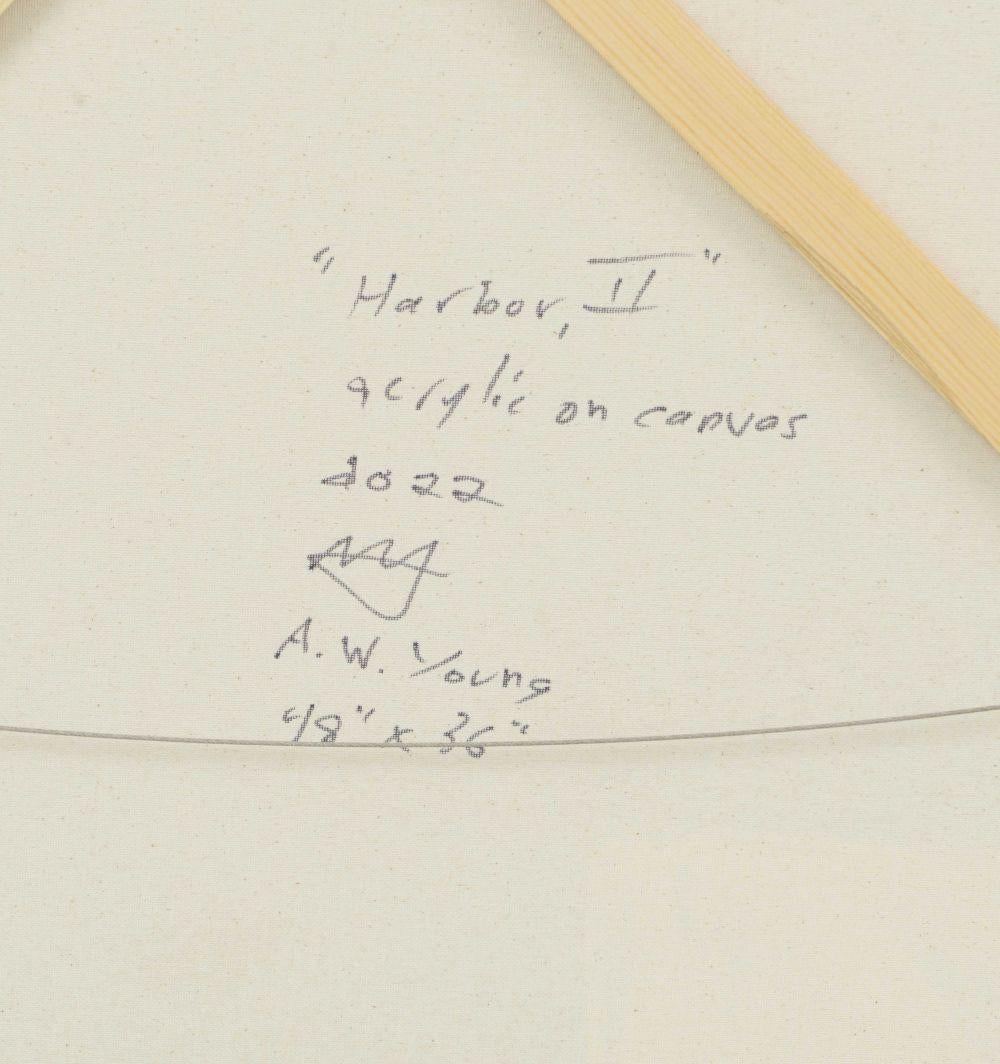 "Harbor, II"
acrylic on canvas
2022
A.W. Young
48" x 36"